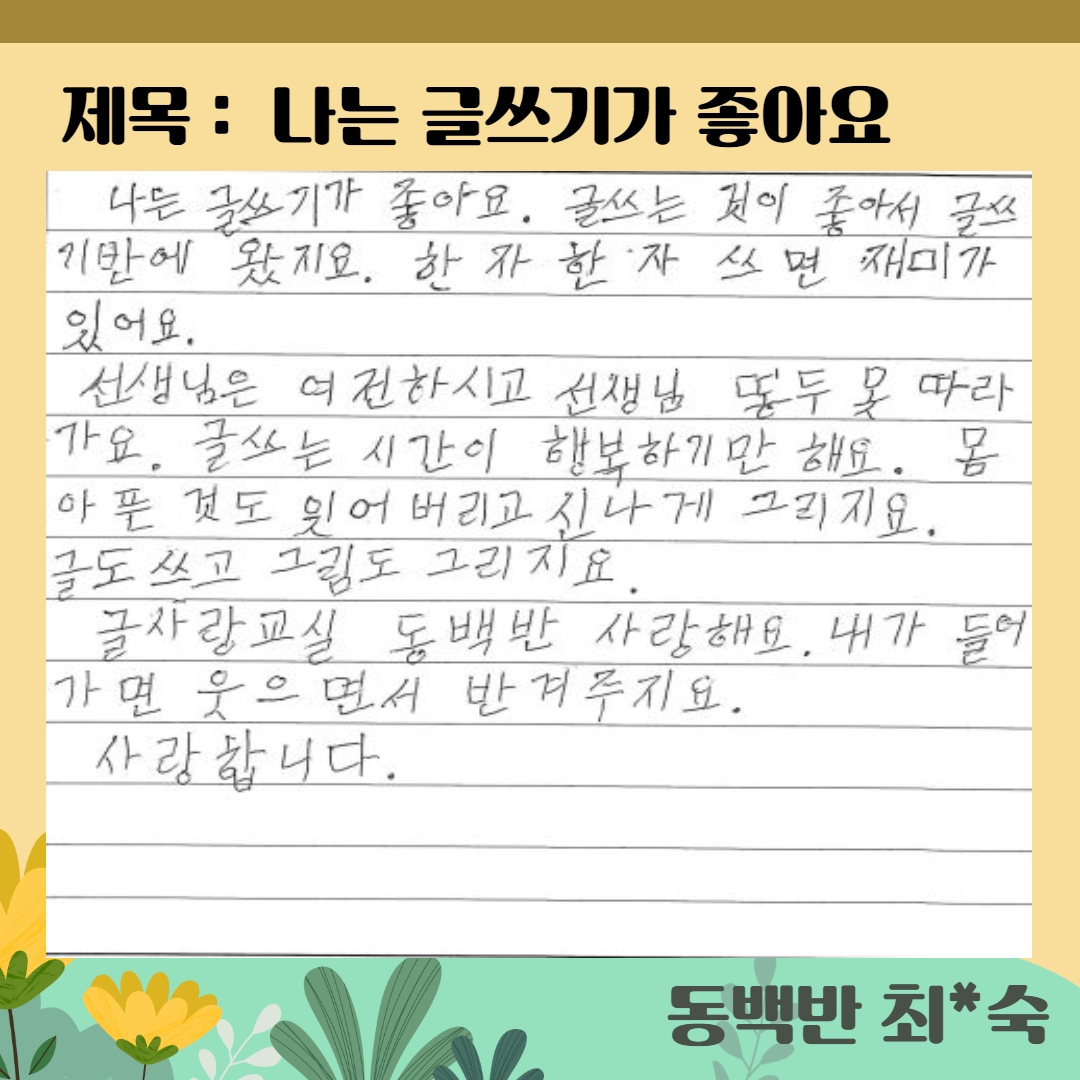 제목 : 나는 글쓰기가 좋아요
나는 글쓰기가 좋아요. 글쓰는 것이 좋아서 글쓰
기반에 왔지요. 한 자 한 자 쓰면 재미가
있어요.
선생님은 여전하시고 선생님 모두 못 따라
가요. 글쓰는 시간이 행복하기만 해요. 몸
아픈 것도 잊어버리고 신나게 그리지요.
글도 쓰고 그림도 그리지요.
글사랑교실 동백반 사랑해요. 내가 들어
가면 웃으면서 반겨주지요.
사랑합니다.
동백반 최*숙